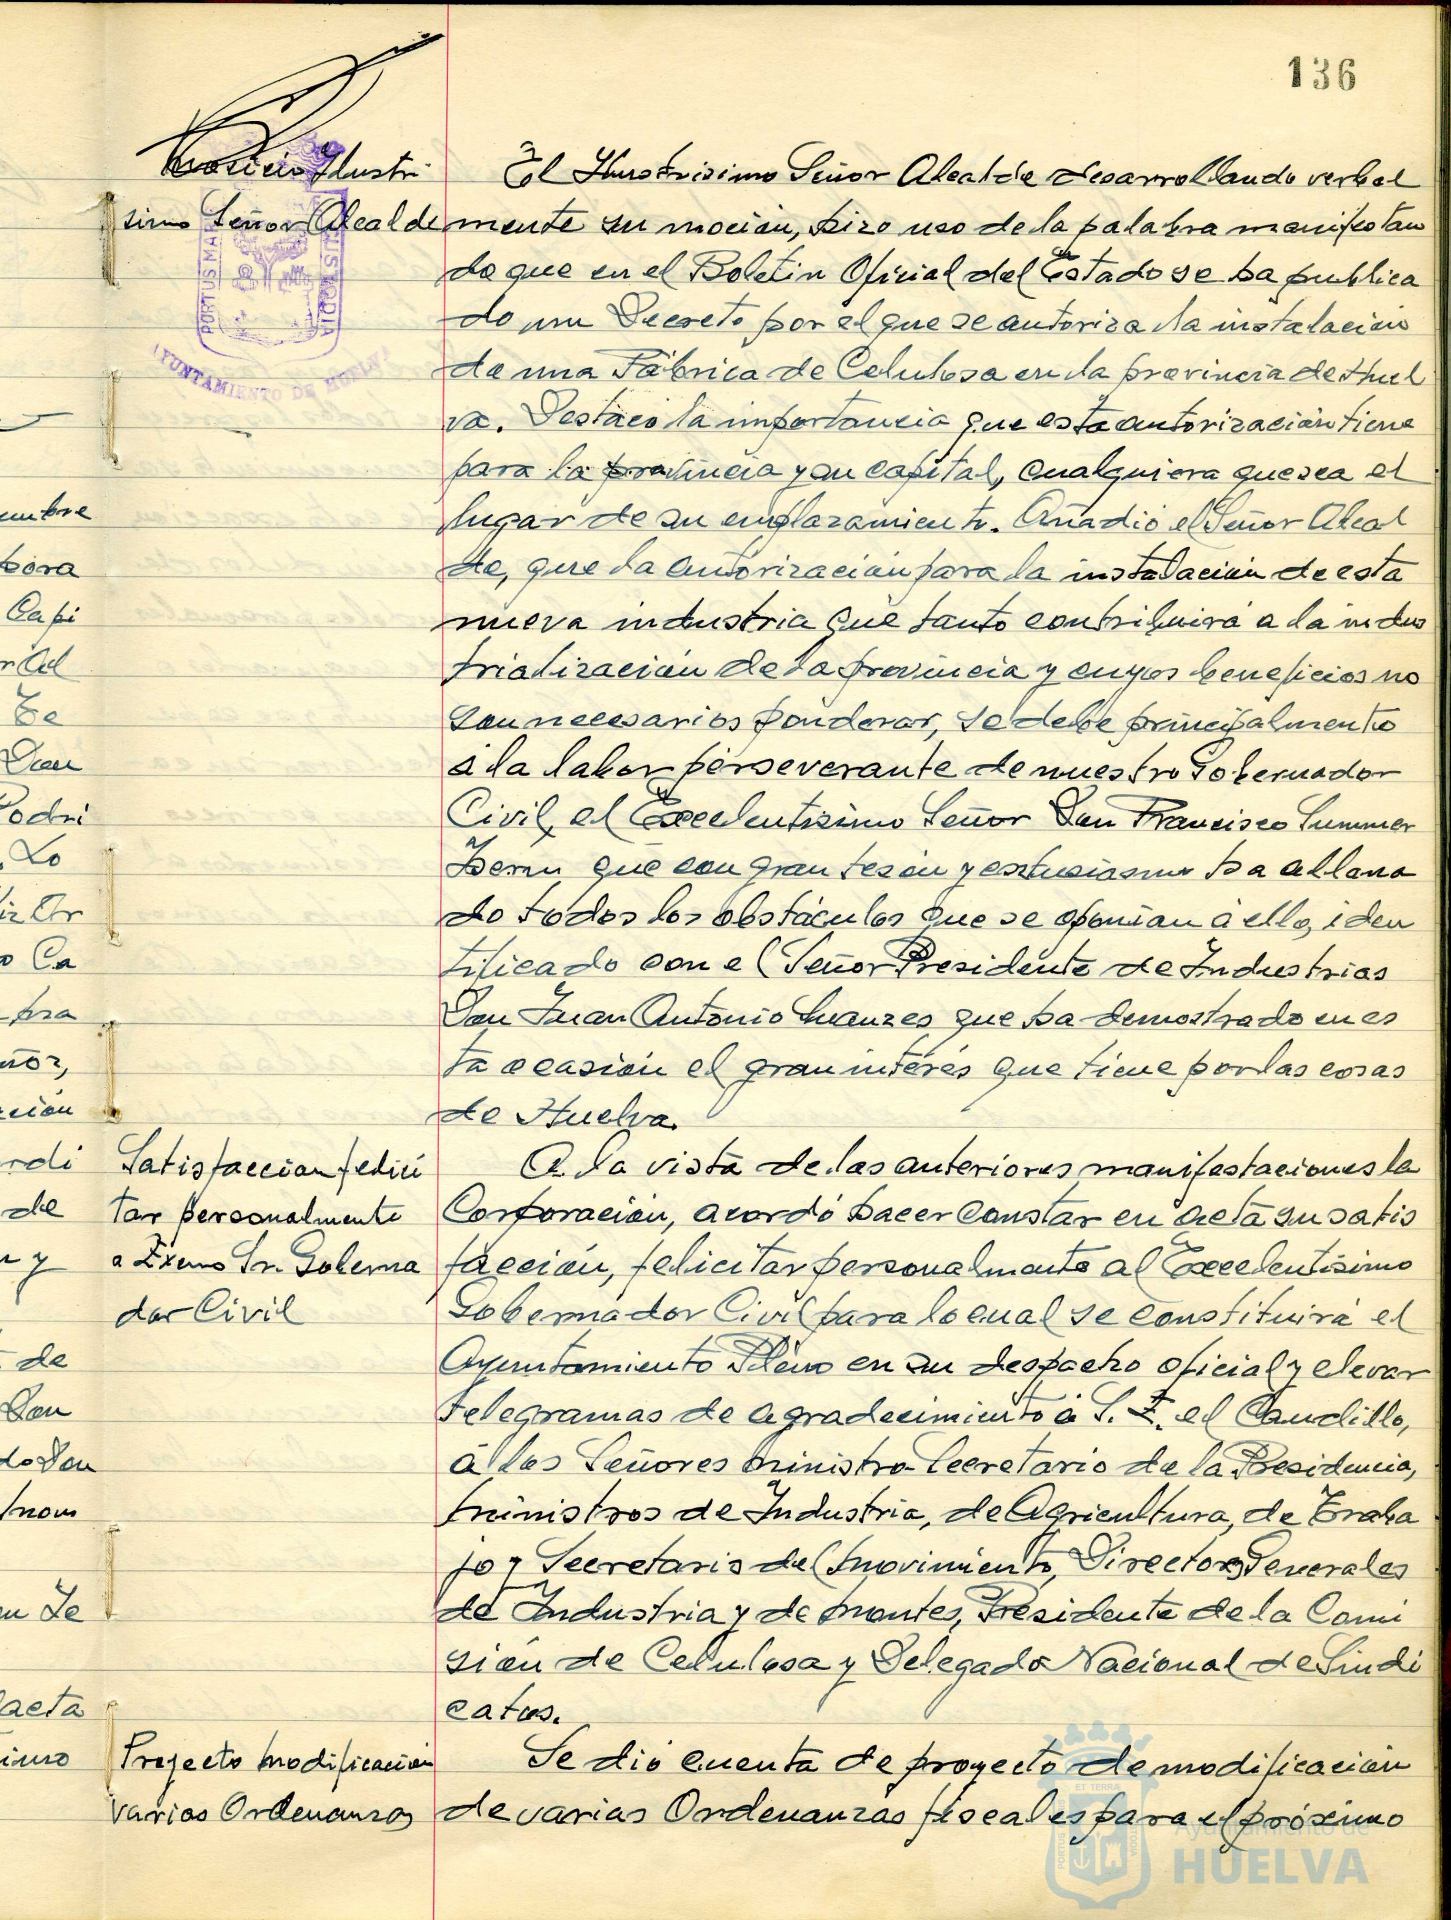 136
Moción Ilustrí
simo Señor Alcalde
El Ilustrisimo Señor Alcalde desarrollando verbal
mente su moción, hizo uso de la palabra manifestan
do que en el Boletin Oficial del Estado se ha publica
do un Decreto por el que se autoriza la instalación
de una Fábrica de Celulosa en la provincia de Huel
va. Destacó la importancia que esta autorización tiene
para la provincia y su capital, cualquiera que sea el
lugar de su emplazamiento. Añadió el Señor Alcal
de, que la autorización para la instalación de esta
nueva industria que tanto contribuirá a la indus
trialización de la provincia y cuyos beneficios no
son necesarios ponderar, se debe principalmente
á la labor perseverante de nuestro Gobernador
Civil, el Excelentisimo Señor Don Francisco Summer
Isern que con gran tesón y entusiasmo ha allana
do todos los obstáculos que se oponian á ello, iden
tificado con el Señor Presidente de Industrias
Don Juan Antonio Suanzes que ha demostrado en es
ta ocasión el gran interés que tiene por las cosas
de Huelva.
Satisfaccion felici
tar personalmente
a Exmo Sr. Goberna
dor Civil
A la vista de las anteriores manifestaciones la
Corporación, acordó hacer constar en acta su satis
facción, felicitar personalmente al Excelentísimo
Gobernador Civil para lo cual se constituirá el
Ayuntamiento Pleno en su despacho oficial y elevar
telegramas de agradecimiento á S. E. el Caudillo,
á los Señores Ministro-Secretario de la Presidencia,
Ministros de Industria, de Agricultura, de Traba
jo y Secretario del Movimiento, Directores Generales
de Industria y de Montes, Presidente de la Comi
sión de Celulosa y Delegado Nacional de Sindi
catos.
Proyecto modificación
varias Ordenanzas
Se dió cuenta de proyecto de modificación
de varias Ordenanzas fiscales para el próximo
PORTUS MARIS
CUSTODIA
AYUNTAMIENTO DE HUELVA
umbre
hora
Capi
Te
Don
Rodri
Lo
Ca
ción
de
y
de
Don
do Don
Te
acta
Ayuntamiento de
HUELVA